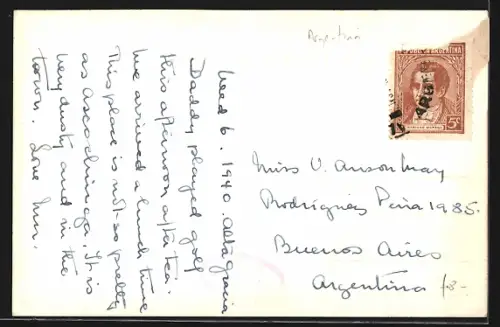 Argentina
Wed 6. 1940. Altagracia
Daddy played golf
this afternoon after tea.
We arrived a lunch time
This place is not so pretty
as ascochinga. It is
very dusty and in the
town. Love Mum.
REPUBLICA ARGENTINA
5c
Miss V. Anson May
Rodrigues Peña 1935.
Buenos Aires
Argentina